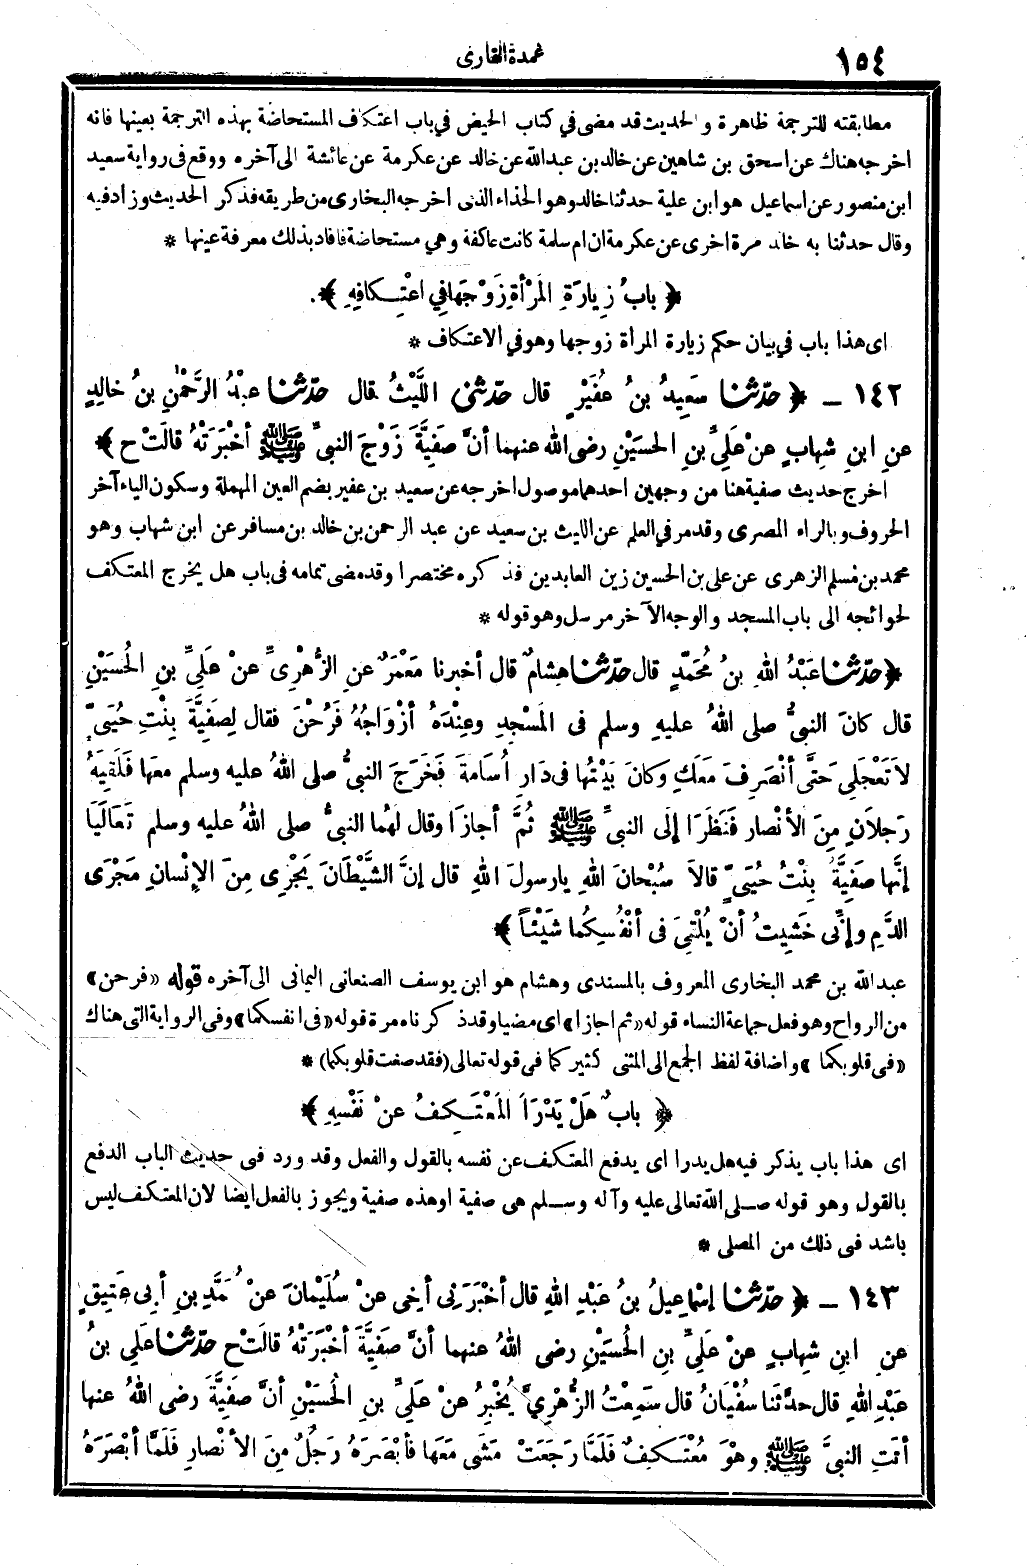 ١٥٤
عمدة القارى
مطابقته للترجمة ظاهرة والحديث قد مضى في كتاب الحيض في باب اعتكاف المستحاضة بهذه الترجمة بعينها فانه
اخرجه هناك عن اسحق بن شاهين عن خالد بن عبدالله عن خالد عن عكرمة عن عائشة الى آخره ووقع فى رواية سعيد
ابن منصور عن اسماعيل هو ابن علية حدثنا خالد وهو الحذاء الذى اخرجه البخارى من طريقه فذكر الحديث وزاد فيه
وقال حدثنا به خالد مرة اخرى عن عكرمة ان ام سلمة كانت عاكفة وهي مستحاضة فافاد بذلك معرفة عينها *
﴿ بابُ زِيارَةِ المَرْأةِ زَوْجَهَا في اعْتِكافِهِ ﴾.
اى هذا باب في بيان حكم زيارة المرأة زوجها وهو في الاعتكاف *
١٤٢ ــ ﴿ حدّثنا سَعِيدُ بنُ عُفَيْرٍ قال حدّثني اللَّيْثُ قال حدّثنا عبْدُ الرَّحْمٰنِ بنُ خالِدٍ
عنِ ابنِ شِهابٍ عنْ عَلِيِّ بنِ الحسَيْنِ رضى الله عنهما أنَّ صَفِيَّةَ زَوْجَ النبيِّ ﷺ أخْبَرَتْهُ قالَتْ ح ﴾
اخرج حديث صفية هنا من وجهين احدهما موصول اخرجه عن سعيد بن عفير بضم العين المهملة وسكون الياء آخر
الحروف وبالراء المصرى وقد مر في العلم عن الليث بن سعيد عن عبد الرحمن بن خالد بن مسافر عن ابن شهاب وهو
محمد بن مسلم الزهرى عن على بن الحسين زين العابدين فذكره مختصرا وقد مضى تمامه فى باب هل يخرج المعتكف
لحوائجه الى باب المسجد والوجه الآخر مرسل وهو قوله *
﴿ حدّثنا عَبْدُ اللهِ بنُ مُحَمَّدٍ قال حدّثنا هِشامٌ قال أخبرنا مَعْمَرٌ عنِ الزُّهْرِىِّ عنْ عَلِيِّ بنِ الحُسَيْنِ
قال كانَ النبيُّ صلى اللهُ عليهِ وسلم فى المَسْجِدِ وعِنْدَهُ أزْوَاجُهُ فَرُحْنَ فقال لِصَفِيَّةَ بِنْتِ حُيَىٍّ
لاَ تَعْجَلِي حَتَّى أنْصَرِفَ مَعَكِ وكانَ بَيْتُها فى دَارِ أُسَامَةَ فَخَرَجَ النبيُّ صلى اللهُ عليه وسلم معَها فَلَقِيَهُ
رَجلاَنِ مِنَ الأنْصارِ فَنَظَرَا إلَى النبيِّ ﷺ ثُمَّ أجازَا وقال لهُما النبيُّ صلى اللهُ عليه وسلم تَعَالَيَا
إنَّها صَفِيَّةُ بِنْتُ حُيَىٍّ قالاَ سُبْحانَ اللهِ يارسولَ اللهِ قال إنَّ الشَّيْطَانَ يَجْرِى مِنَ الإنْسانِ مَجْرَى
الدَّمِ وإنِّى خَشِيتُ أنْ يُلْقِىَ فى أنْفُسِكُما شَيْئاً ﴾
عبدالله بن محمد البخارى المعروف بالمسندى وهشام هو ابن يوسف الصنعانى اليمانى الى آخره قوله «فرحن»
من الرواح وهو فعل جماعة النساء قوله «ثم اجازا» اى مضيا وقد ذكرناه مرة قوله «فى انفسكما» وفى الرواية التى هناك
«فى قلوبكما» واضافة لفظ الجمع الى المثنى كثير كما فى قوله تعالى (فقد صغت قلوبكما) *
﴿ بابٌ هَلْ يَدْرَأ المُعْتَكِفُ عنْ نَفْسِهِ ﴾
اى هذا باب يذكر فيه هل يدرا اى يدفع المعتكف عن نفسه بالقول والفعل وقد ورد فى حديث الباب الدفع
بالقول وهو قوله صلى الله تعالى عليه وآله وسلم هى صفية اوهذه صفية ويجوز بالفعل ايضا لان المعتكف ليس
باشد فى ذلك من المصلى *
١٤٣ ــ ﴿ حدّثنا إسْماعِيلُ بنُ عَبْدِ اللهِ قال أخْبَرَنى أخِى عنْ سُلَيْمَانَ عنْ مُحَمَّدِ بنِ أبى عَتِيقٍ
عنِ ابنِ شِهابٍ عنْ عَلِيِّ بنِ الحُسَيْنِ رضى اللهُ عنهما أنَّ صَفِيَّةَ أخْبَرَتْهُ قالَتْ ح حدّثنا عَلي بنُ
عَبْدِ اللهِ قال حدَّثَنا سُفْيَانُ قال سَمِعْتُ الزُّهْرِيَّ يُخْبِرُ عنْ عَلِيِّ بنِ الحُسَيْنِ أنَّ صَفِيَّةَ رضى اللهُ عنها
أتَتِ النبيَّ ﷺ وهْوَ مُعْتَكِفٌ فَلَمَّا رَجَعَتْ مَشَى مَعَها فأبْصَرَهُ رَجُلٌ مِنَ الأنْصارِ فَلَمَّا أبْصَرَهُ